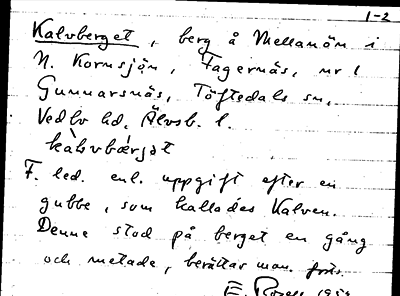 1-2
Kalvberget, berg å Mellanön i
N. Kornsjön, Fagernäs, nr 1
Gunnarsnäs, Töftedals sn,
Vedbo hd, Älvsb. l.
F. led. enl. uppgift efter en
gubbe, som kallades Kalven.
Denne stod på berget en gång
och metade, berättar man.
E.